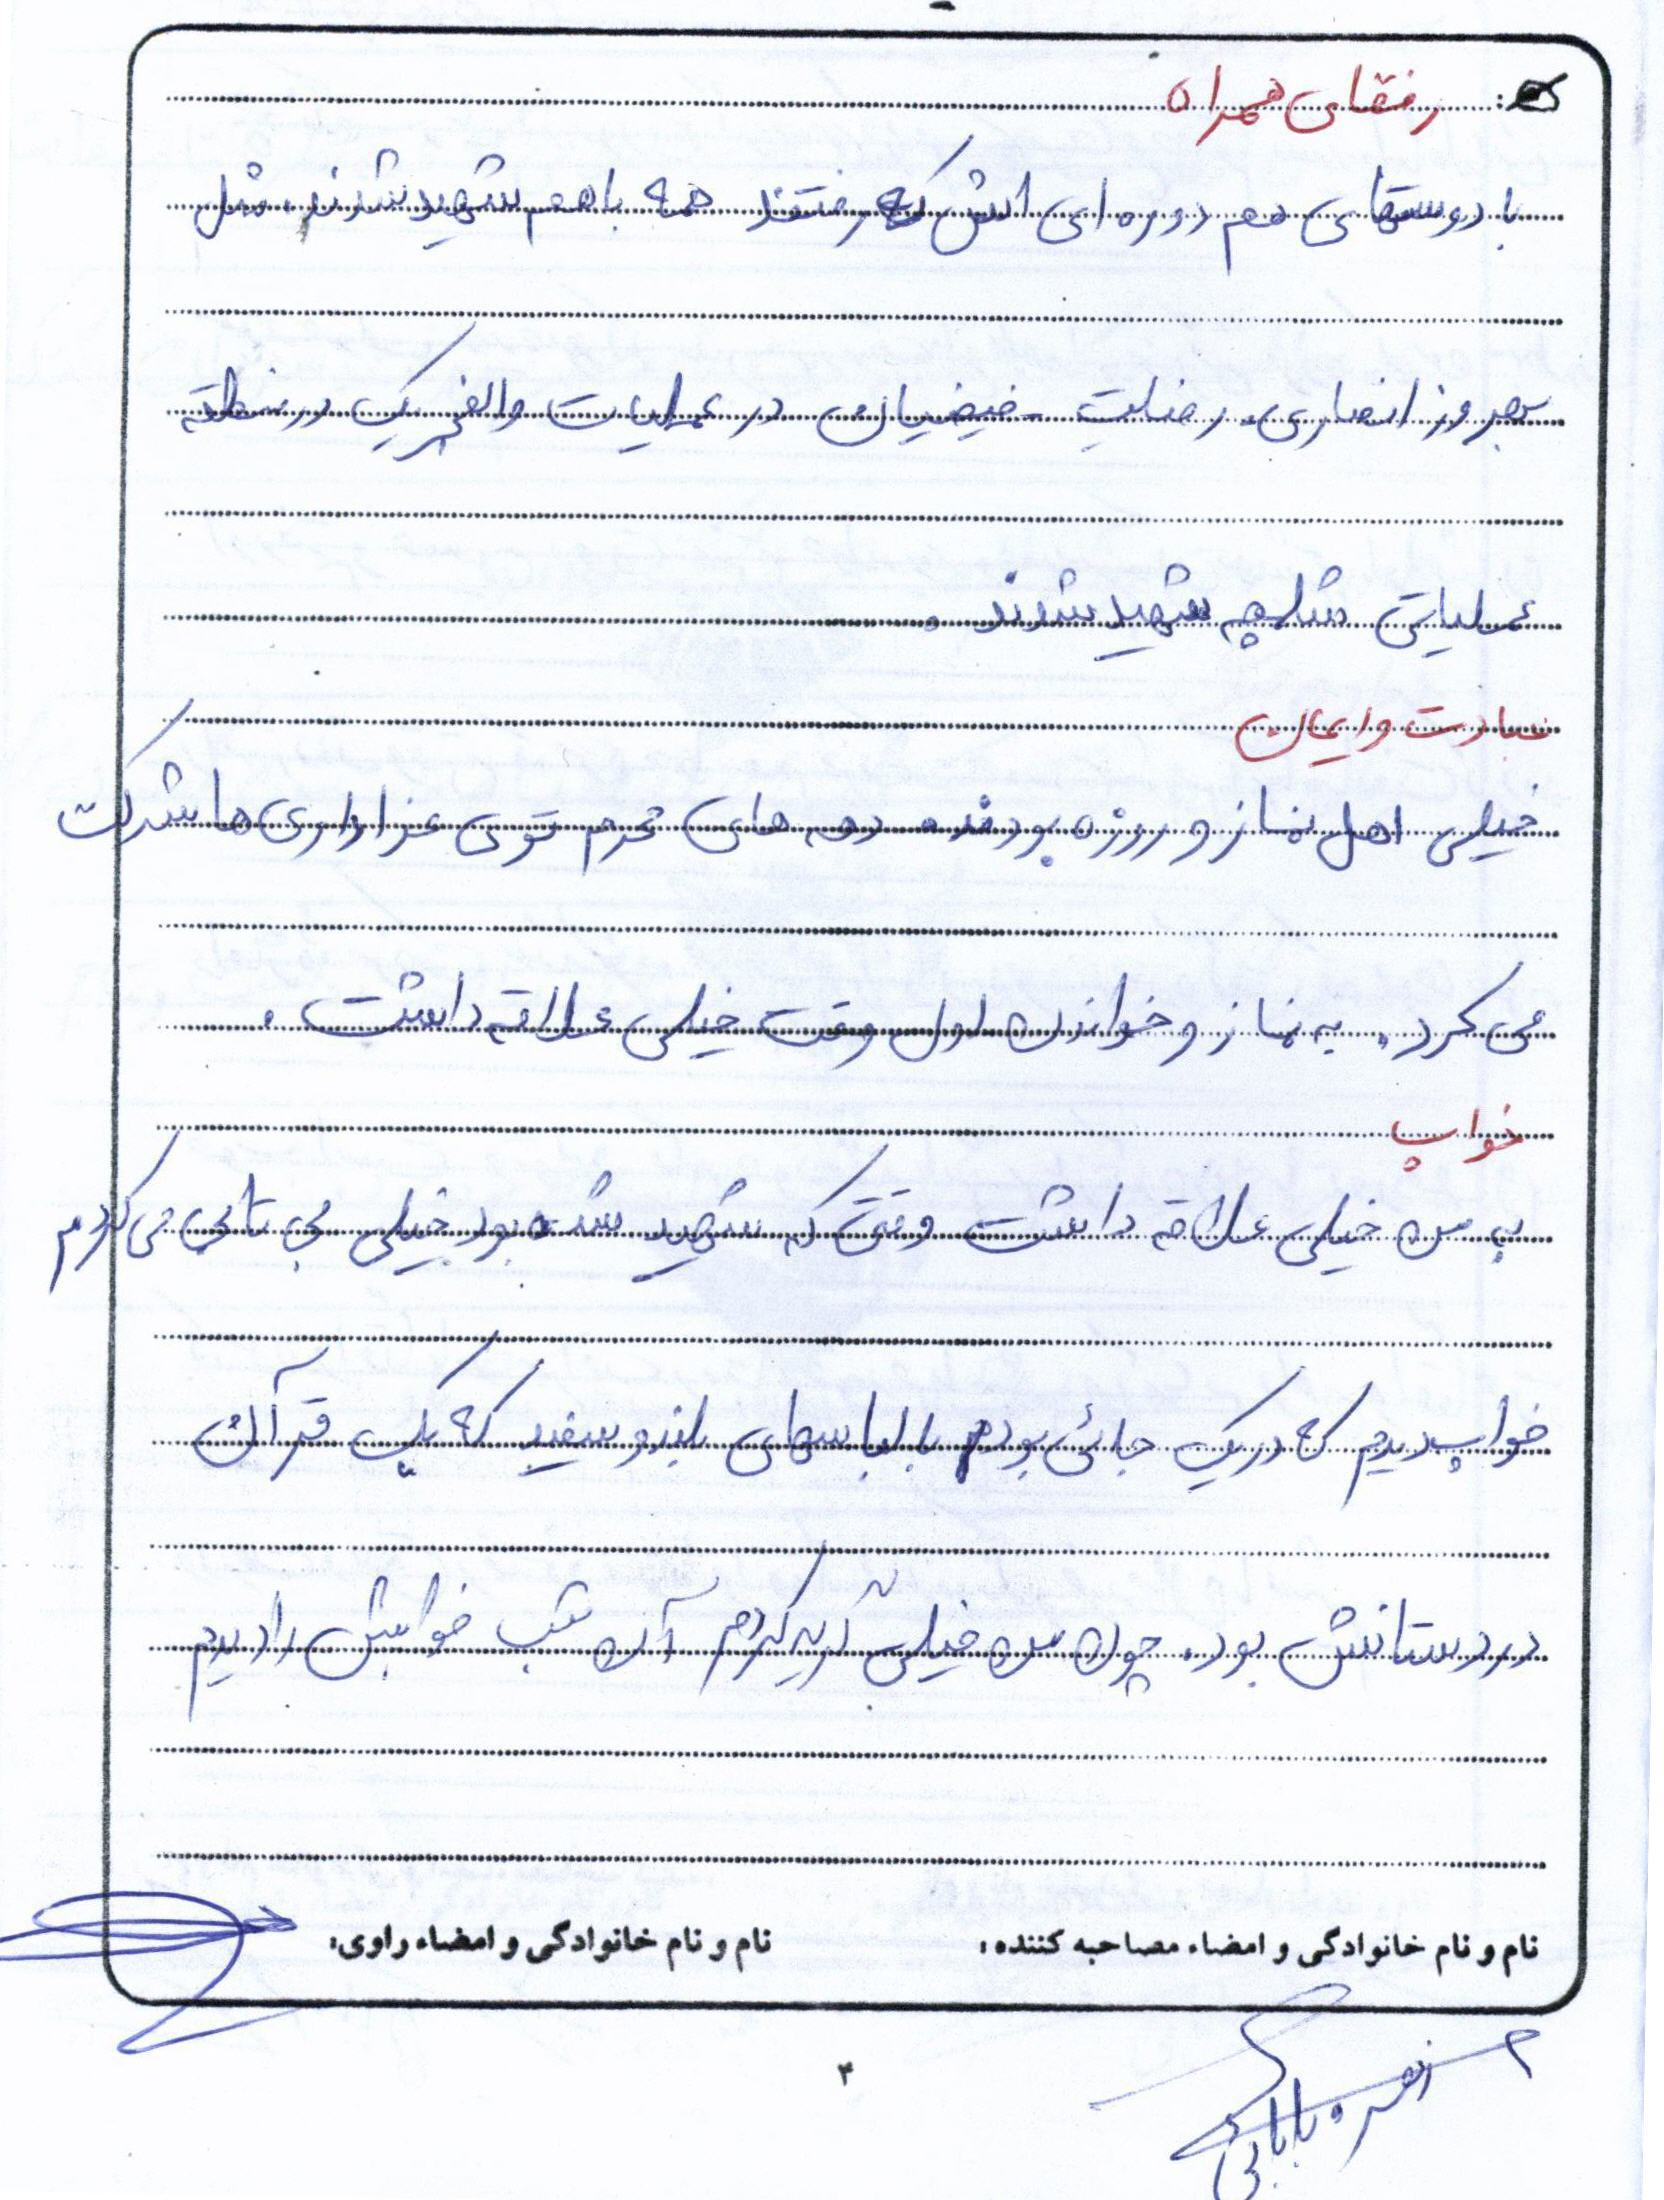 رفقای همراه
با دوستهای هم دوره ای اش که رفتند همه باهم شهید شدند، مثل
بهروز انصاری، رضایت فیضیان در عملیات والفجر یک در منطقه
عملیاتی شلمچه شهید شدند.
عبادت و ایمان
خیلی اهل نماز و روزه بودند. دهه های محرم توی عزاداری ها شرکت
می کرد. به نماز و خواندن اول وقت خیلی علاقه داشت.
خواب
به من خیلی علاقه داشت وقتی که شهید شده بود خیلی بی تابی می کردم
خواب دیدم که در یک جائی بودم با لباسهای بلند و سفید که یک قرآن
در دستانش بود. چون من خیلی گریه کردم آن شب خوابش را دیدم
نام و نام خانوادگی و امضاء مصاحبه کننده:
نام و نام خانوادگی و امضاء راوی:
بابایی
۴